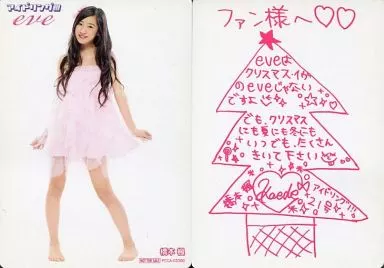 アイドリング!!!
eve
橋本 楓
NOT FOR SALE
PCCA-03090
ファン様へ♡♡
eveは
クリスマス・イヴの
のeveじゃない
ですよ
でも、クリスマス
にも夏にも冬にも
いつでも、たくさん
きいて下さい
Kaede
アイドリング!!!
21号